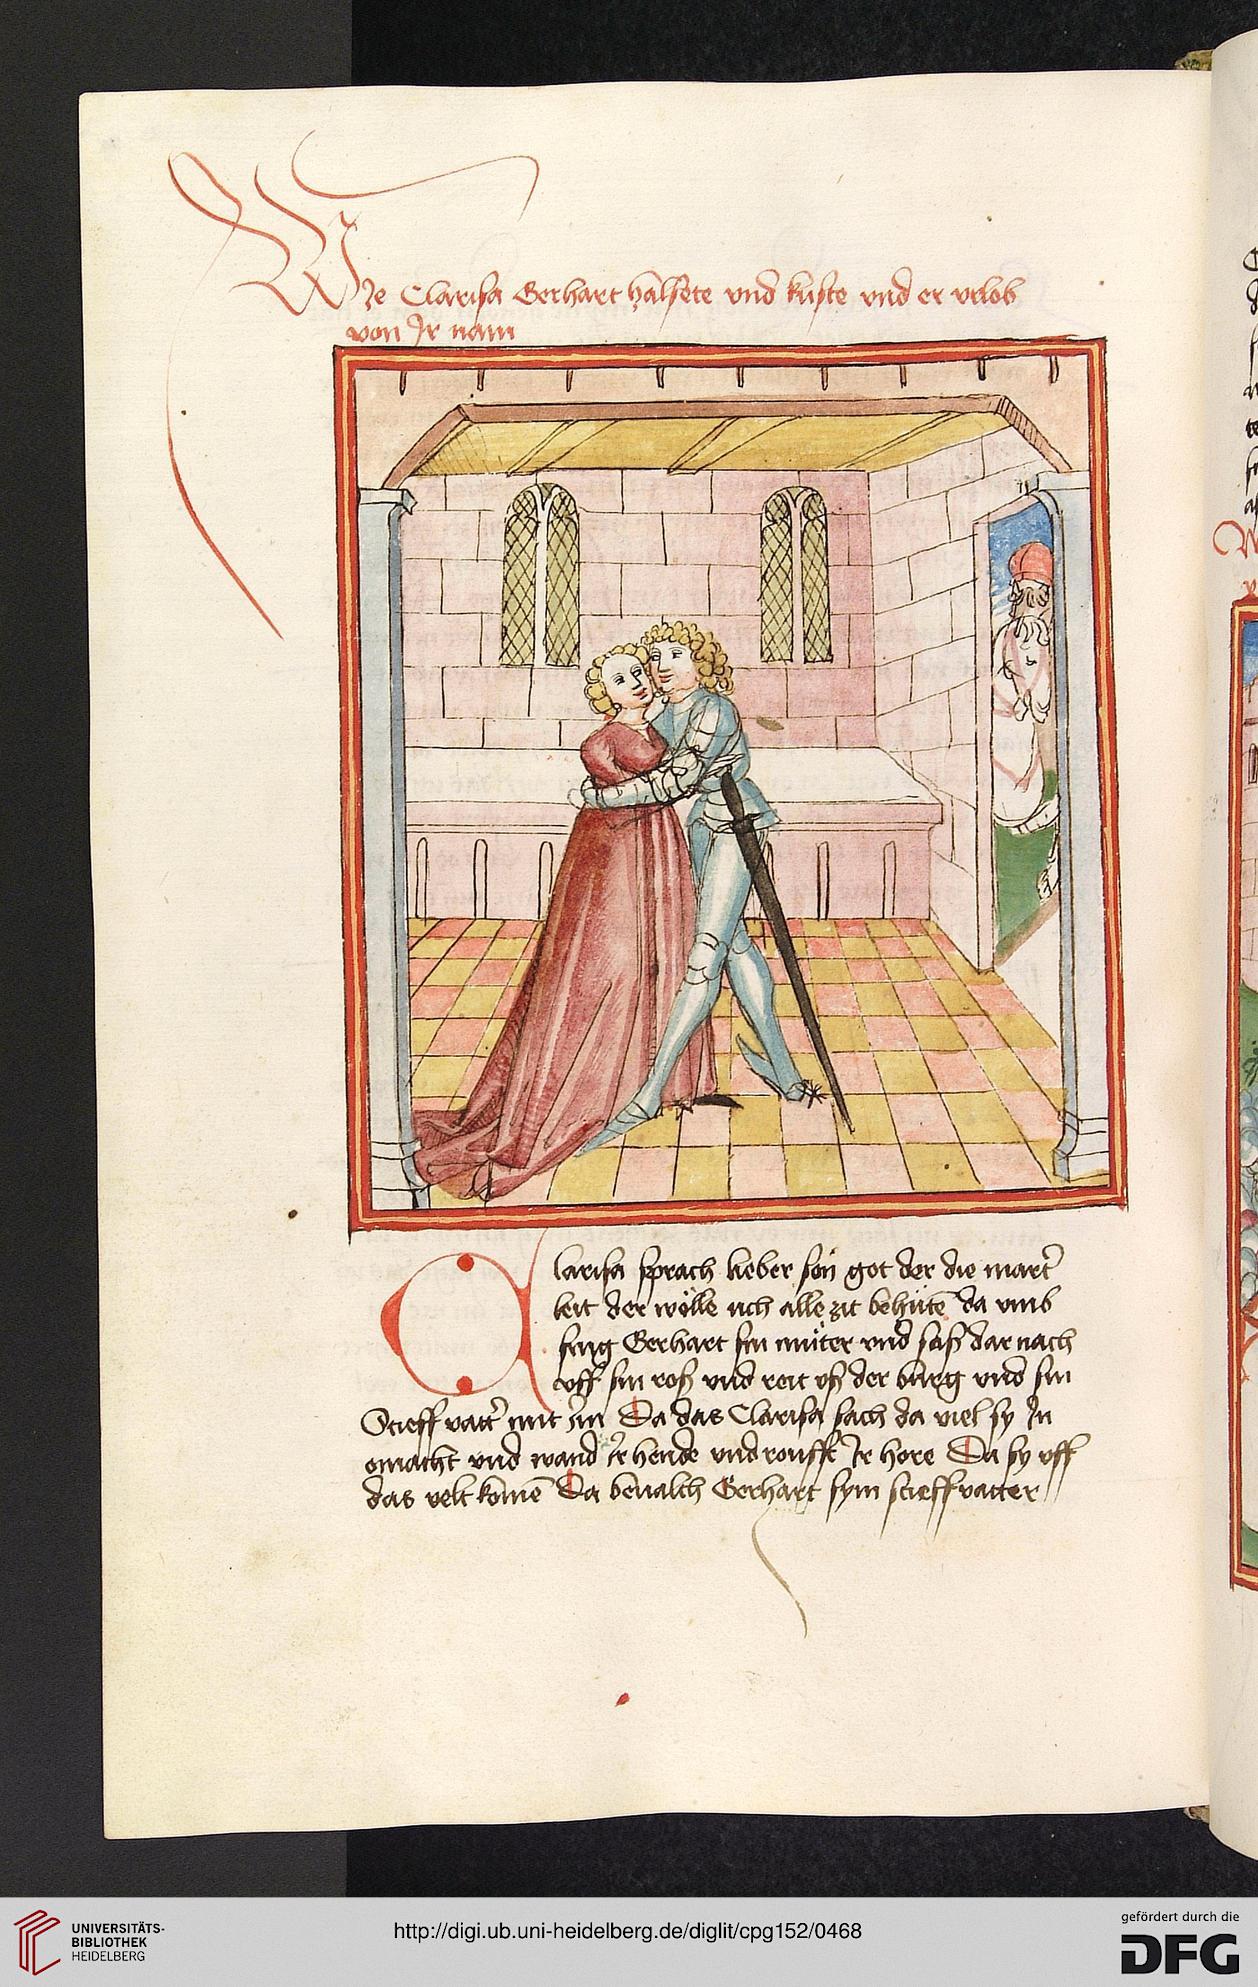 Wie Clarisa Gerhart halsete vnd kuste vnd er vrlob
von Jr nam
Clarisa sprach lieber son got der die mart͛
leit der wölle uch alle zit behüte͞ da vmb
fing Gerhart sin müter vnd saß dar nach
vff sin roß vnd reit vß der burg vnd sin
Stieff vatt͛ mit jm Da das Clarisa sach da viel sy Jn
omacht vnd wand ir hende vnd rouffte Jr hore Da sy vff
das velt kome͞ Da beualch Gerhart sym stieffvatter
UNIVERSITÄTS-
BIBLIOTHEK
HEIDELBERG
http://digi.ub.uni-heidelberg.de/diglit/cpg152/0468
gefördert durch die
DFG